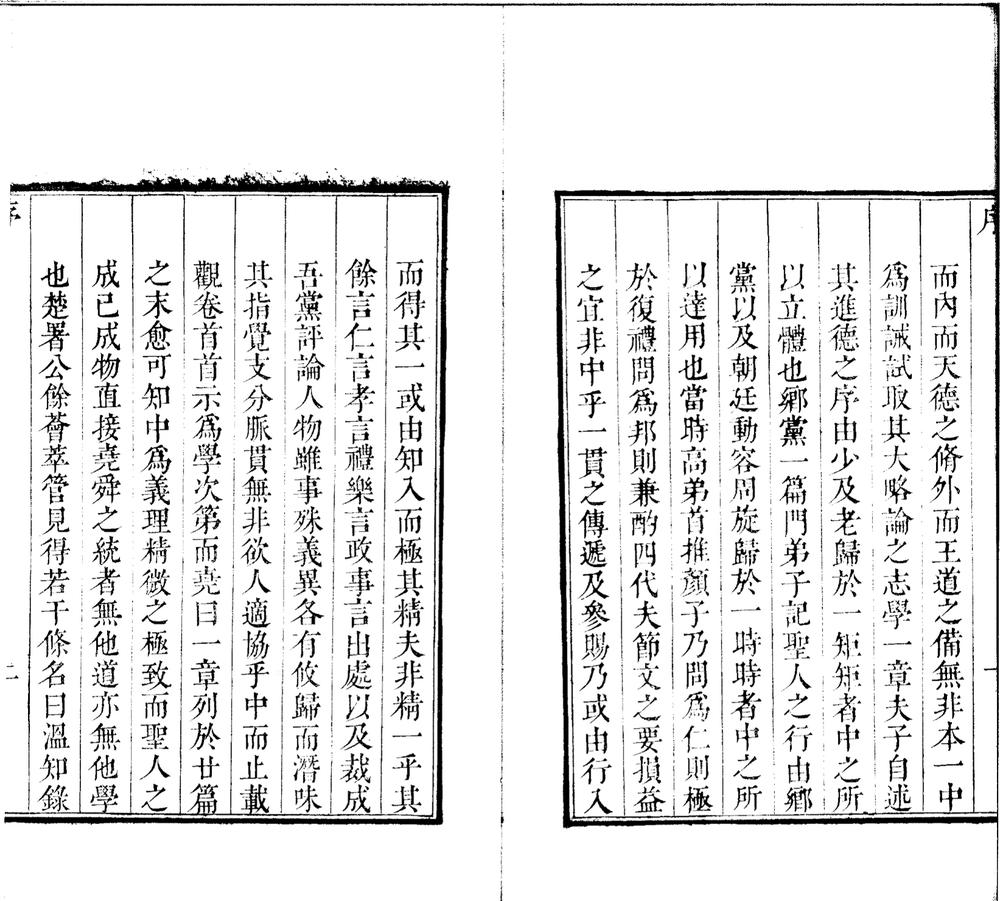 序
一
而內而天德之脩外而王道之備無非本一中
爲訓誡試取其大略論之志學一章夫子自述
其進德之序由少及老歸於一矩矩者中之所
以立體也鄉黨一篇門弟子記聖人之行由鄉
黨以及朝廷動容周旋歸於一時時者中之所
以達用也當時高弟首推顏子乃問爲仁則極
於復禮問爲邦則兼酌四代夫節文之要損益
之宜非中乎一貫之傳遞及參賜乃或由行入
而得其一或由知入而極其精夫非精一乎其
餘言仁言孝言禮樂言政事言出處以及裁成
吾黨評論人物雖事殊義異各有攸歸而潛味
其指覺支分脈貫無非欲人適協乎中而止載
觀卷首首示爲學次第而堯曰一章列於廿篇
之末愈可知中爲義理精微之極致而聖人之
成已成物直接堯舜之統者無他道亦無他學
也楚署公餘薈萃管見得若干條名曰溫知錄
序
二